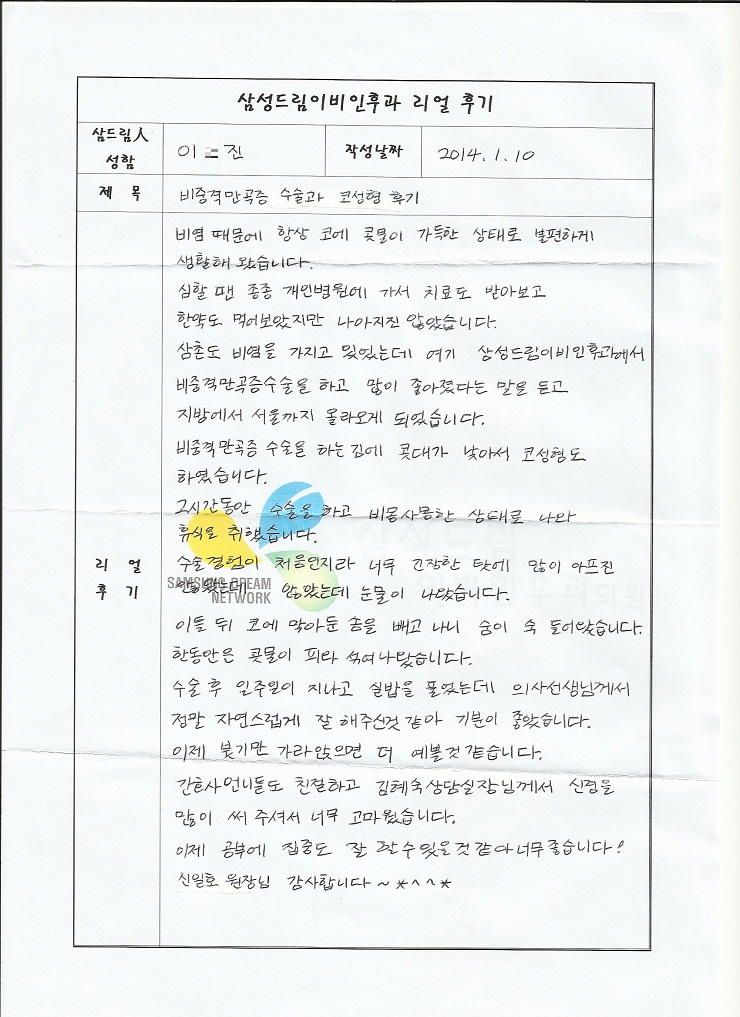 삼성드림이비인후과 리얼 후기
삼드림人
성함
이 진
작성날짜
2014. 1. 10
제 목
비중격만곡증 수술과 코성형 후기
비염 때문에 항상 코에 콧물이 가득한 상태로 불편하게
생활해 왔습니다.
심할 땐 종종 개인병원에 가서 치료도 받아보고
한약도 먹어보았지만 나아지진 않았습니다.
삼촌도 비염을 가지고 있었는데 여기 삼성드림이비인후과에서
비중격만곡증수술을 하고 많이 좋아졌다는 말을 듣고
지방에서 서울까지 올라오게 되었습니다.
비중격만곡증 수술을 하는김에 콧대가 낮아서 코성형도
하였습니다.
2시간동안 수술을 하고 비몽사몽한 상태로 나와
휴식을 취했습니다.
리 얼
후 기
수술경험이 처음인지라 너무 긴장한 탓에 많이 아프진
않았는데 않았는데 눈물이 나왔습니다.
SAMSUNG DREAM
NETWORK
삼성드림
이비인후과의원
이틀 뒤 코에 막아둔 솜을 빼고 나니 숨이 쑥 들어왔습니다.
한동안은 콧물이 피랑 섞여나왔습니다.
수술 후 일주일이 지나고 실밥을 풀었는데 의사선생님께서
정말 자연스럽게 잘 해주신것 같아 기분이 좋았습니다.
이제 붓기만 가라앉으면 더 예쁠것 같습니다.
간호사언니들도 친절하고 김혜숙상담실장님께서 신경을
많이 써 주셔서 너무 고마웠습니다.
이제 공부에 집중도 잘 할수 있을것 같아 너무 좋습니다!
신일호 원장님 감사합니다 ~ *^^*